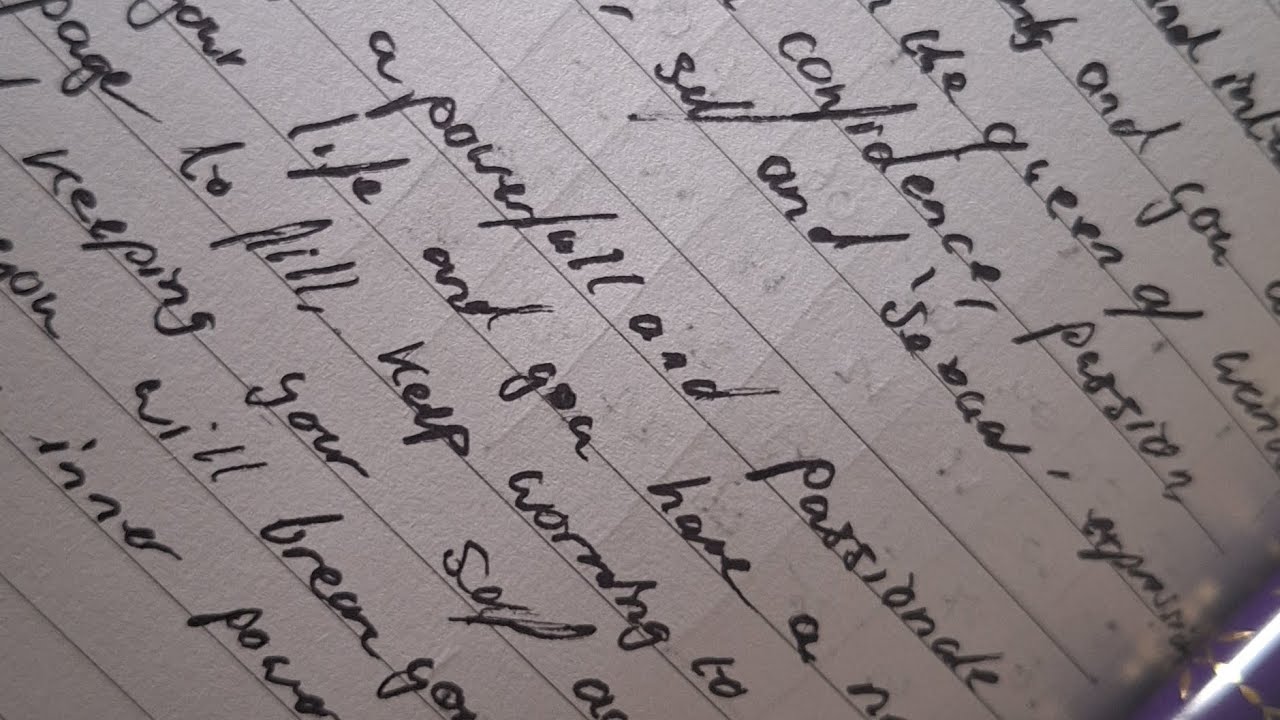 and
and you
the queen of
confidence, passion
self and sexual, expression
a powerfull and passionate
your life and you have a
page to fill, keep working to
keeping your self
you will break
inner power